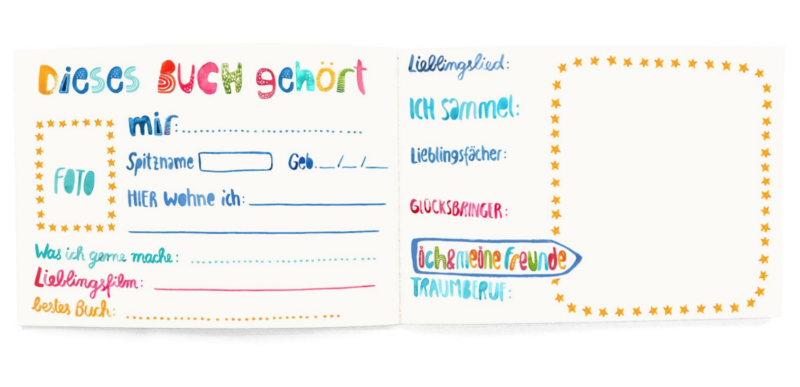 Dieses BUCH gehört
mir:
FOTO
Spitzname Geb. _/_/_
HIER wohne ich:
Was ich gerne mache:
Lieblingsfilm:
bestes Buch:
Lieblingslied:
ICH sammel:
Lieblingsfächer:
GLÜCKSBRINGER:
ich&meine Freunde
TRAUMBERUF: